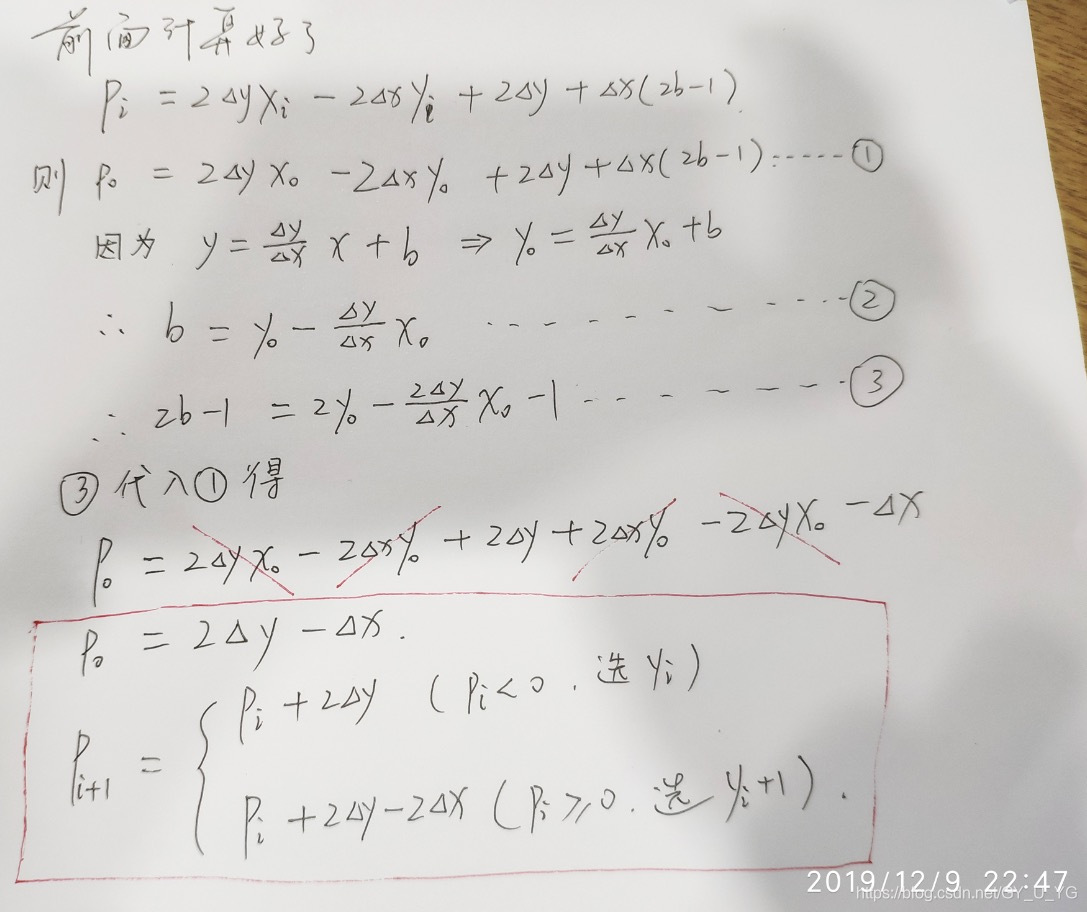 前面计算好了
Pᵢ = 2ΔyXᵢ - 2ΔxYᵢ + 2Δy + Δx(2b-1)
则 P₀ = 2Δy X₀ - 2Δxy₀ + 2Δy + Δx(2b-1)······①
因为 y = Δy/Δx x + b ⇒ y₀ = Δy/Δx X₀ + b
∴ b = y₀ - Δy/Δx X₀ ··········②
∴ 2b-1 = 2y₀ - 2Δy/Δx X₀ - 1 ········③
③代入①得
P₀ = 2Δyx₀ - 2Δxy₀ + 2Δy + 2Δxy₀ - 2ΔyX₀ - Δx
P₀ = 2Δy - Δx.
Pᵢ₊₁ = { Pᵢ + 2Δy (Pᵢ<0. 选 yᵢ)
Pᵢ + 2Δy - 2Δx (Pᵢ⩾0. 选 yᵢ+1).
2019/12/9 22:47
https://blog.csdn.net/GY_U_YG